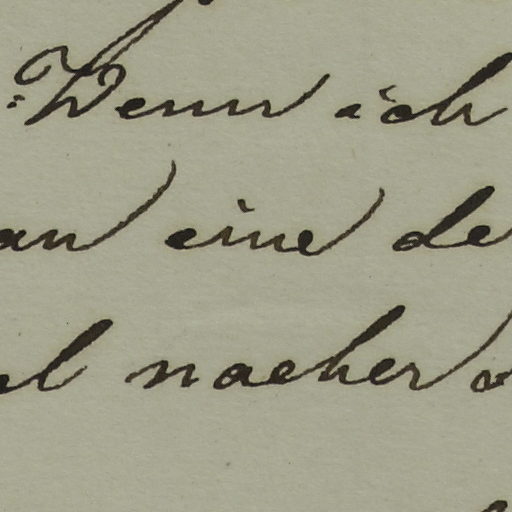 Wenn ich
an eine de
l naeher